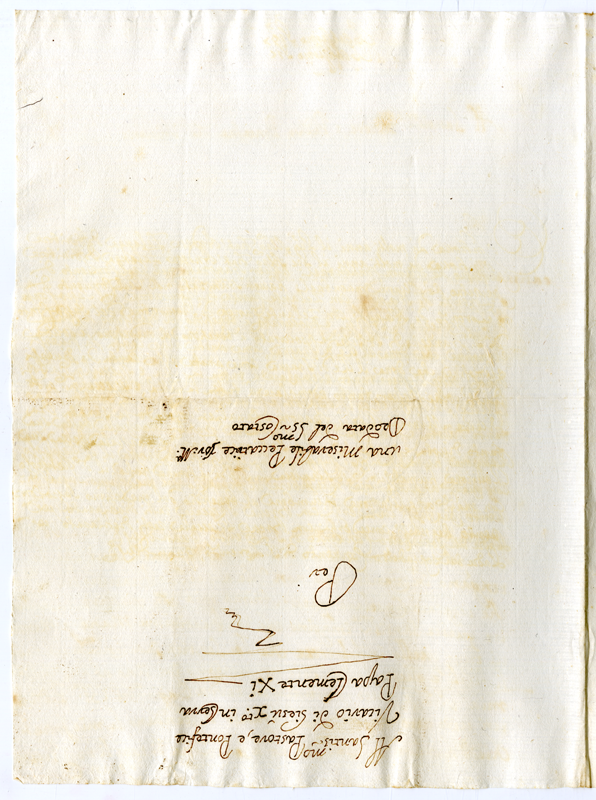 Al Santiss:mo Pastore, e Pontefice
Vicario di Giesù Xto. in terra
Papa Clemente Xi
Per
una miserabile Peccatrice
Deodata del SSmo Costato